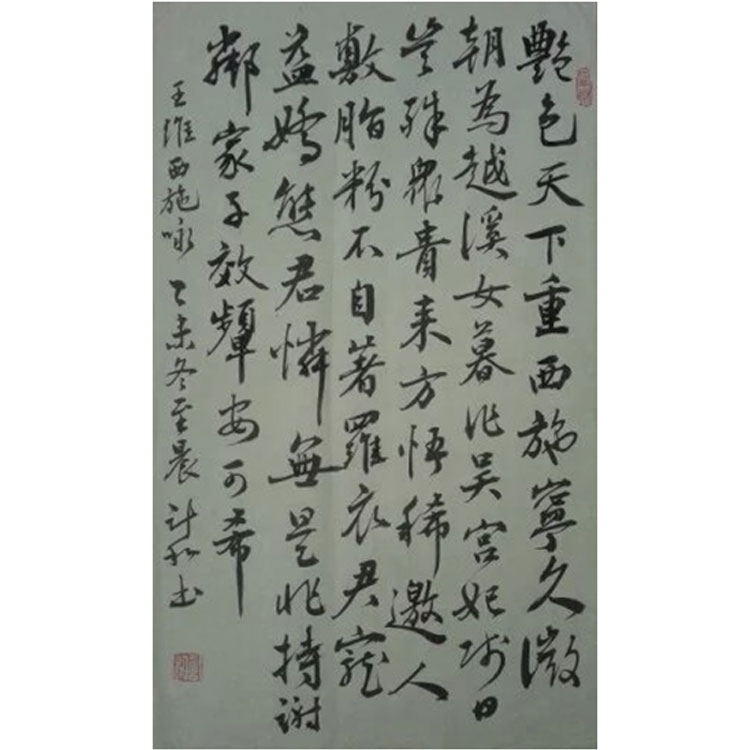 艷色天下重西施寧久微
朝為越溪女暮作吳宮妃賤日
豈殊眾貴來方悟稀邀人
敷脂粉不自著羅衣君寵
益嬌態君憐無是非持謝
鄰家子效顰安可希
王維西施咏 乙未冬至晨 計